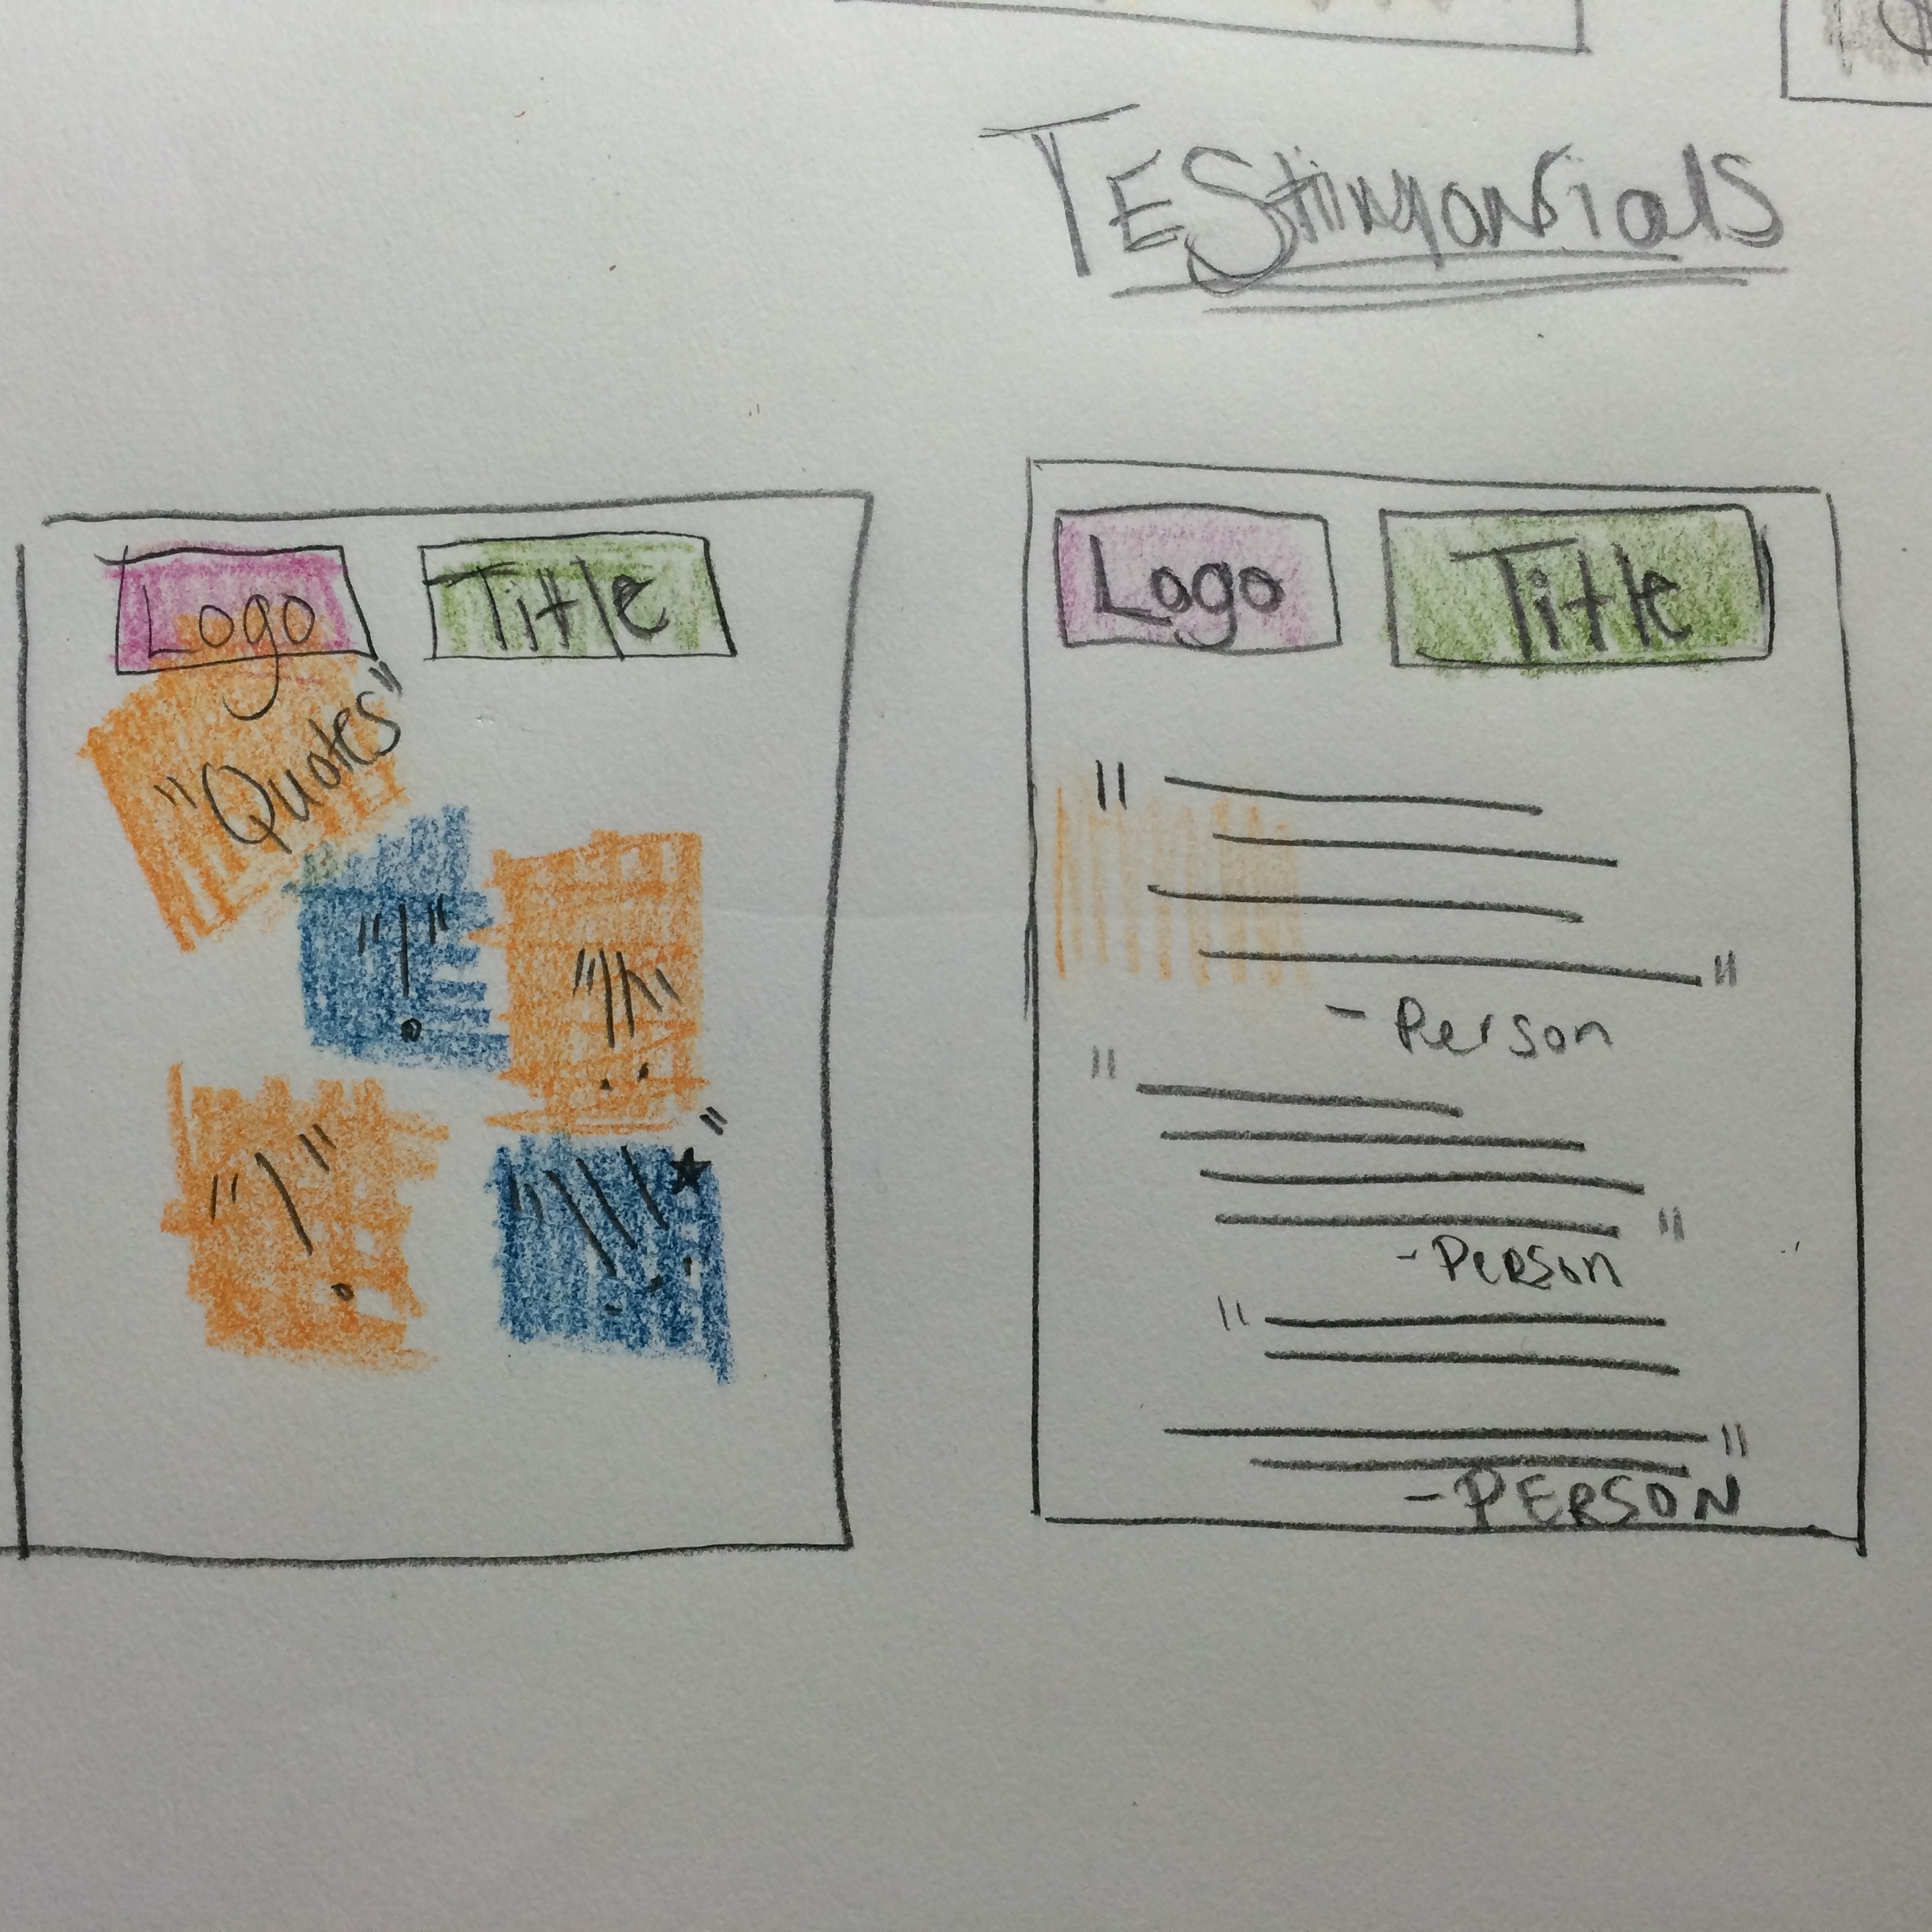 TEStimoNials
Logo
Title
"Quotes"
Logo
Title
- Person
- PERSon
- PERSON